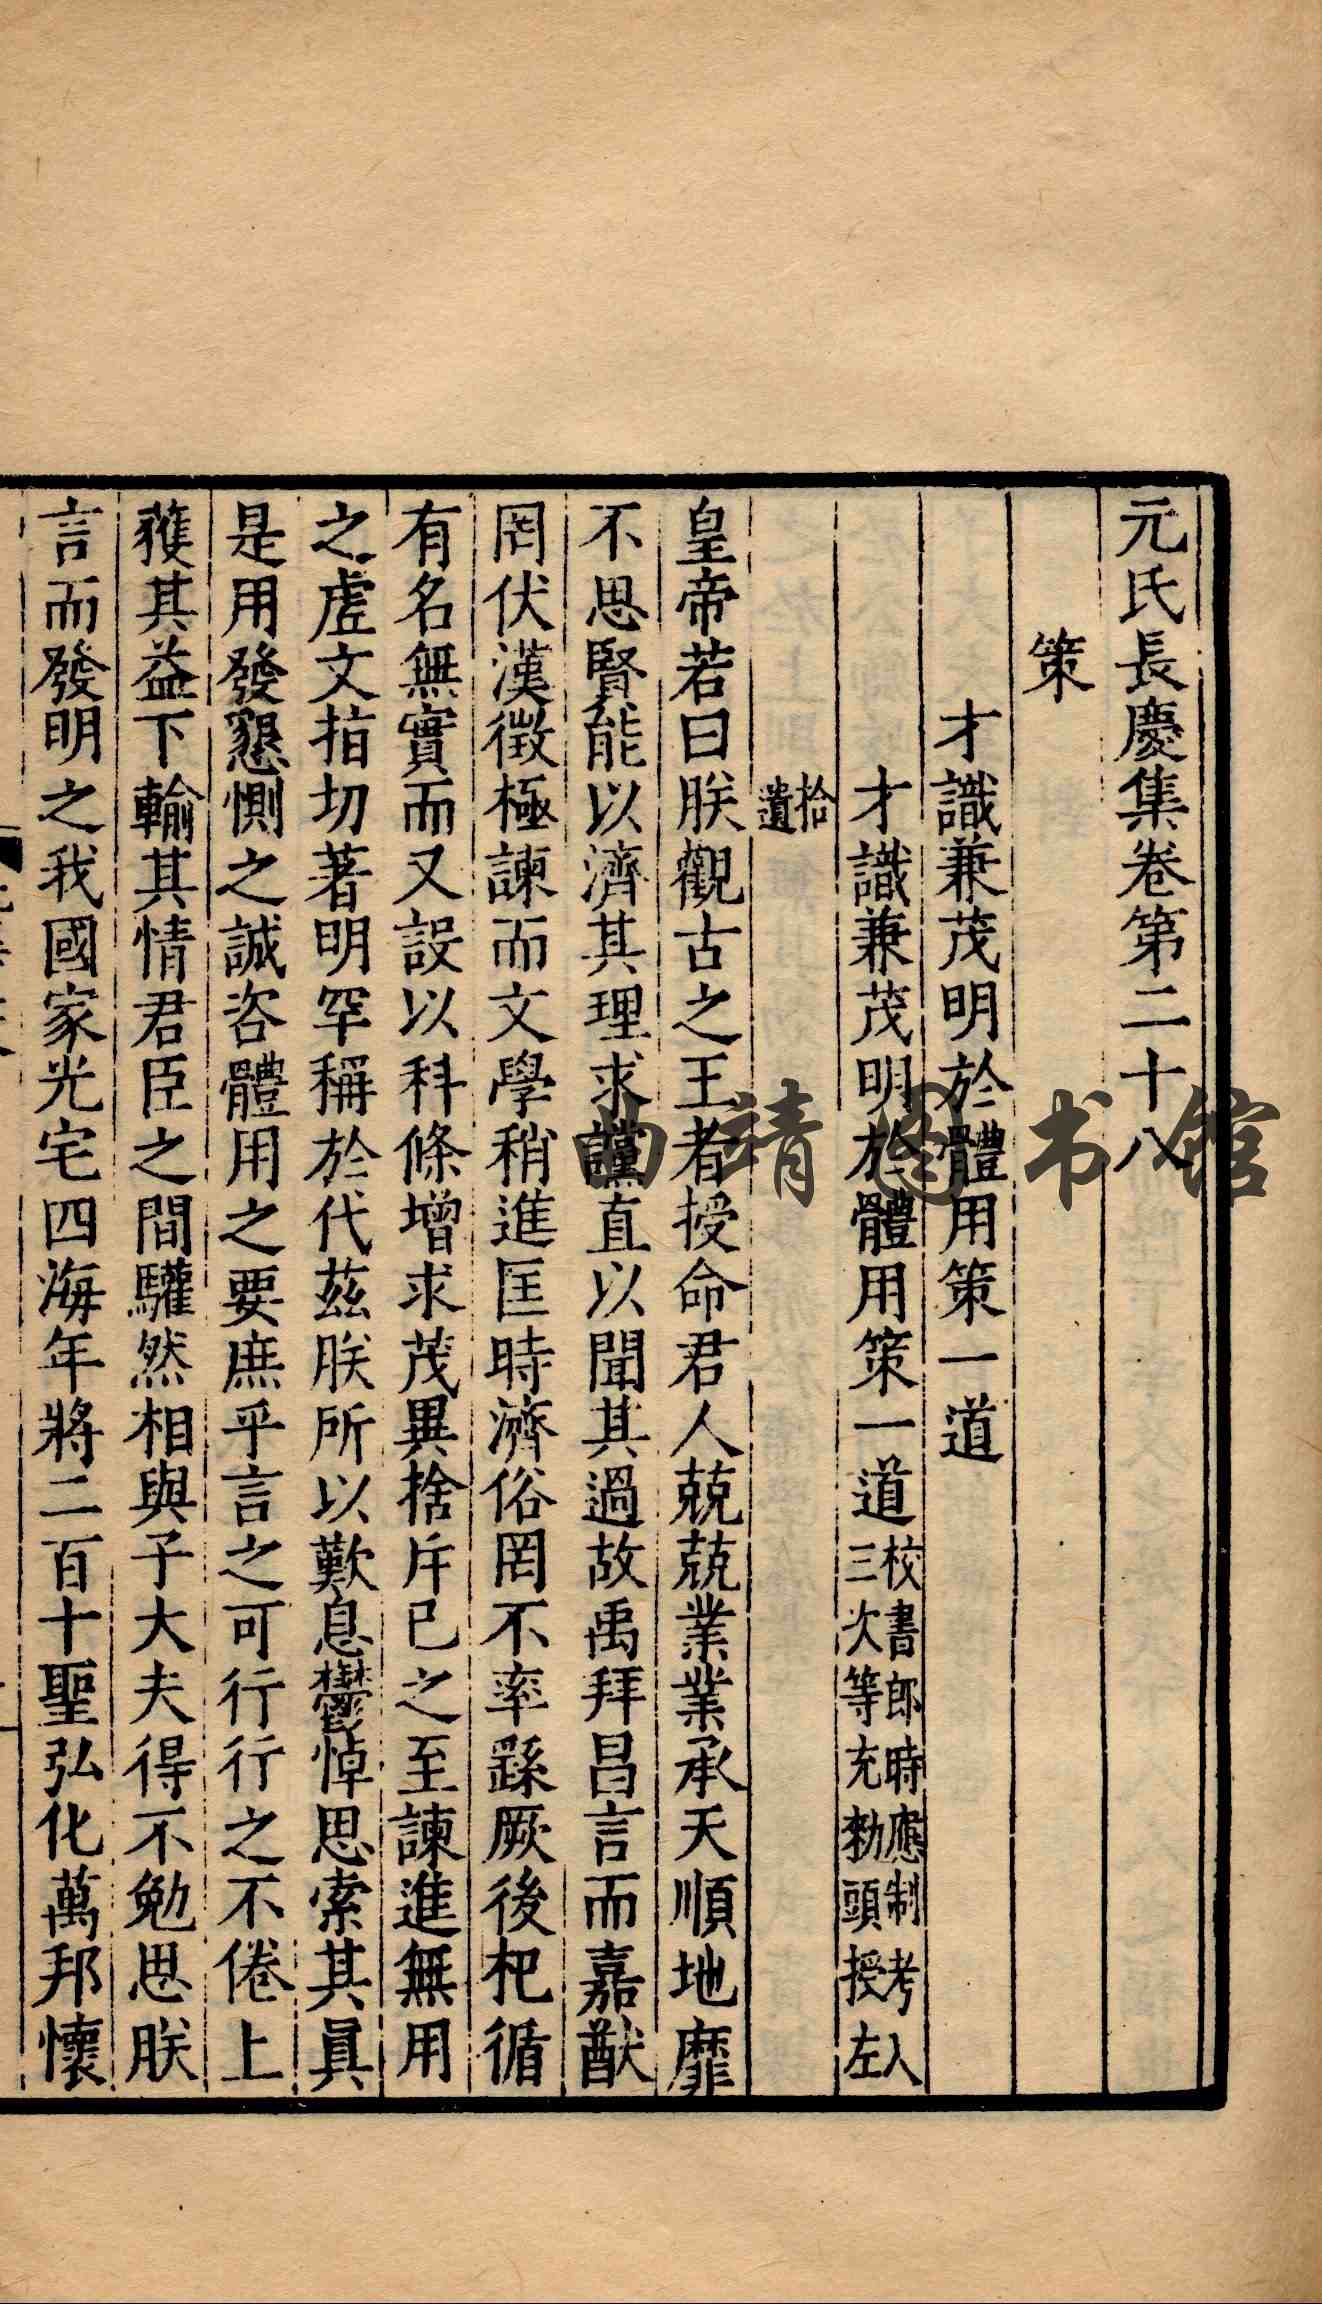 元氏長慶集卷第二十八
策
才識兼茂明於體用策一道
才識兼茂明於體用策一道校書郎時應制考入三次等充勑頭授左
拾遺
皇帝若曰朕觀古之王者授命君人兢兢業業承天順地靡
不思賢能以濟其理求讜直以聞其過故禹拜昌言而嘉猷
罔伏漢徵極諫而文學稍進匡時濟俗罔不率繇厥後杷循
有名無實而又設以科條增求茂異捨斥已之至諫進無用
之虗文指切著明罕稱於代茲朕所以歎息鬱悼思索其眞
是用發懇惻之誠咨體用之要庶乎言之可行行之不倦上
獲其益下輸其情君臣之間驩然相與子大夫得不勉思朕
言而發明之我國家光宅四海年將二百十聖弘化萬邦懷
曲靖图书馆